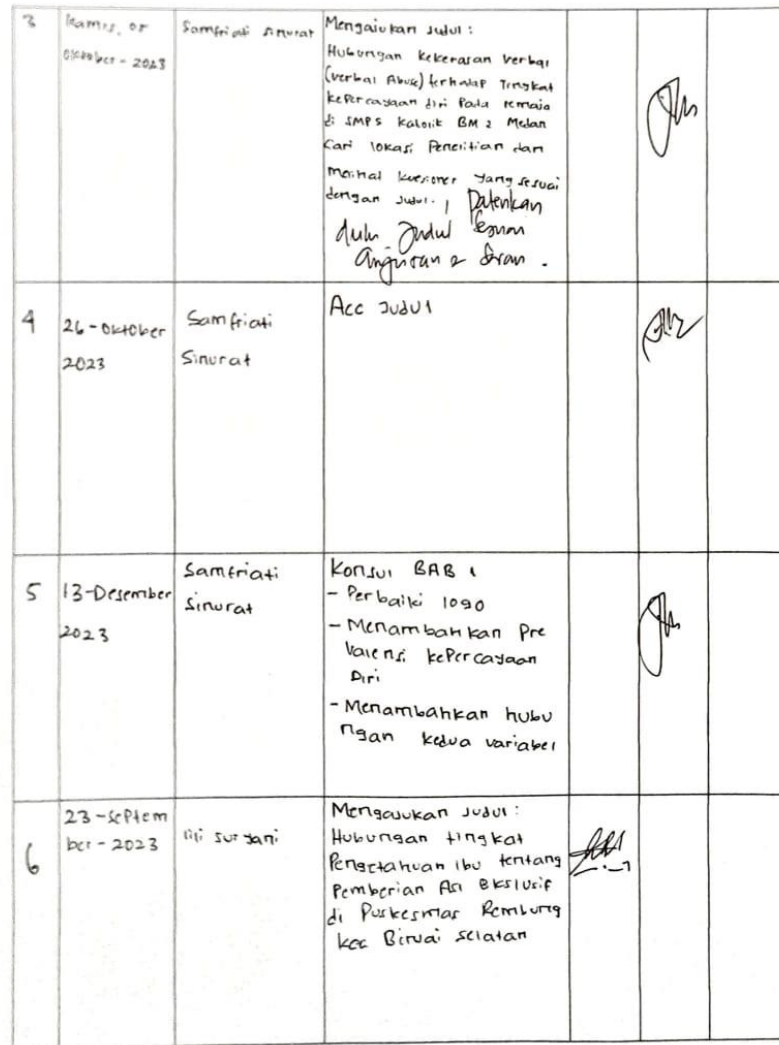 3
Kamis, 05
Oktober - 2023
Samfriati Sinurat
Mengajukan Judul :
Hubungan Kekerasan Verbal
(Verbal Abuse) terhadap Tingkat
kepercayaan diri Pada remaja
di SMPS Katolik BM 2 Medan
Cari lokasi Penelitian dan
kuesioner yang sesuai
dengan Judul. , Patenkan
dulu Judul sesuai
anjuran & saran .
4
26 - Oktober
2023
Samfriati
Sinurat
Acc Judul
5
13-Desember
2023
Samfriati
Sinurat
Konsul BAB 1
- Perbaiki logo
- Menambahkan Pre
valensi kepercayaan
Diri
- Menambahkan hubu
ngan kedua variabel
6
23 - Septem
ber - 2023
lili suryani
Mengajukan Judul :
Hubungan tingkat
Pengetahuan ibu tentang
Pemberian Asi Ekslusif
di Puskesmas Rembung
kec Selatan